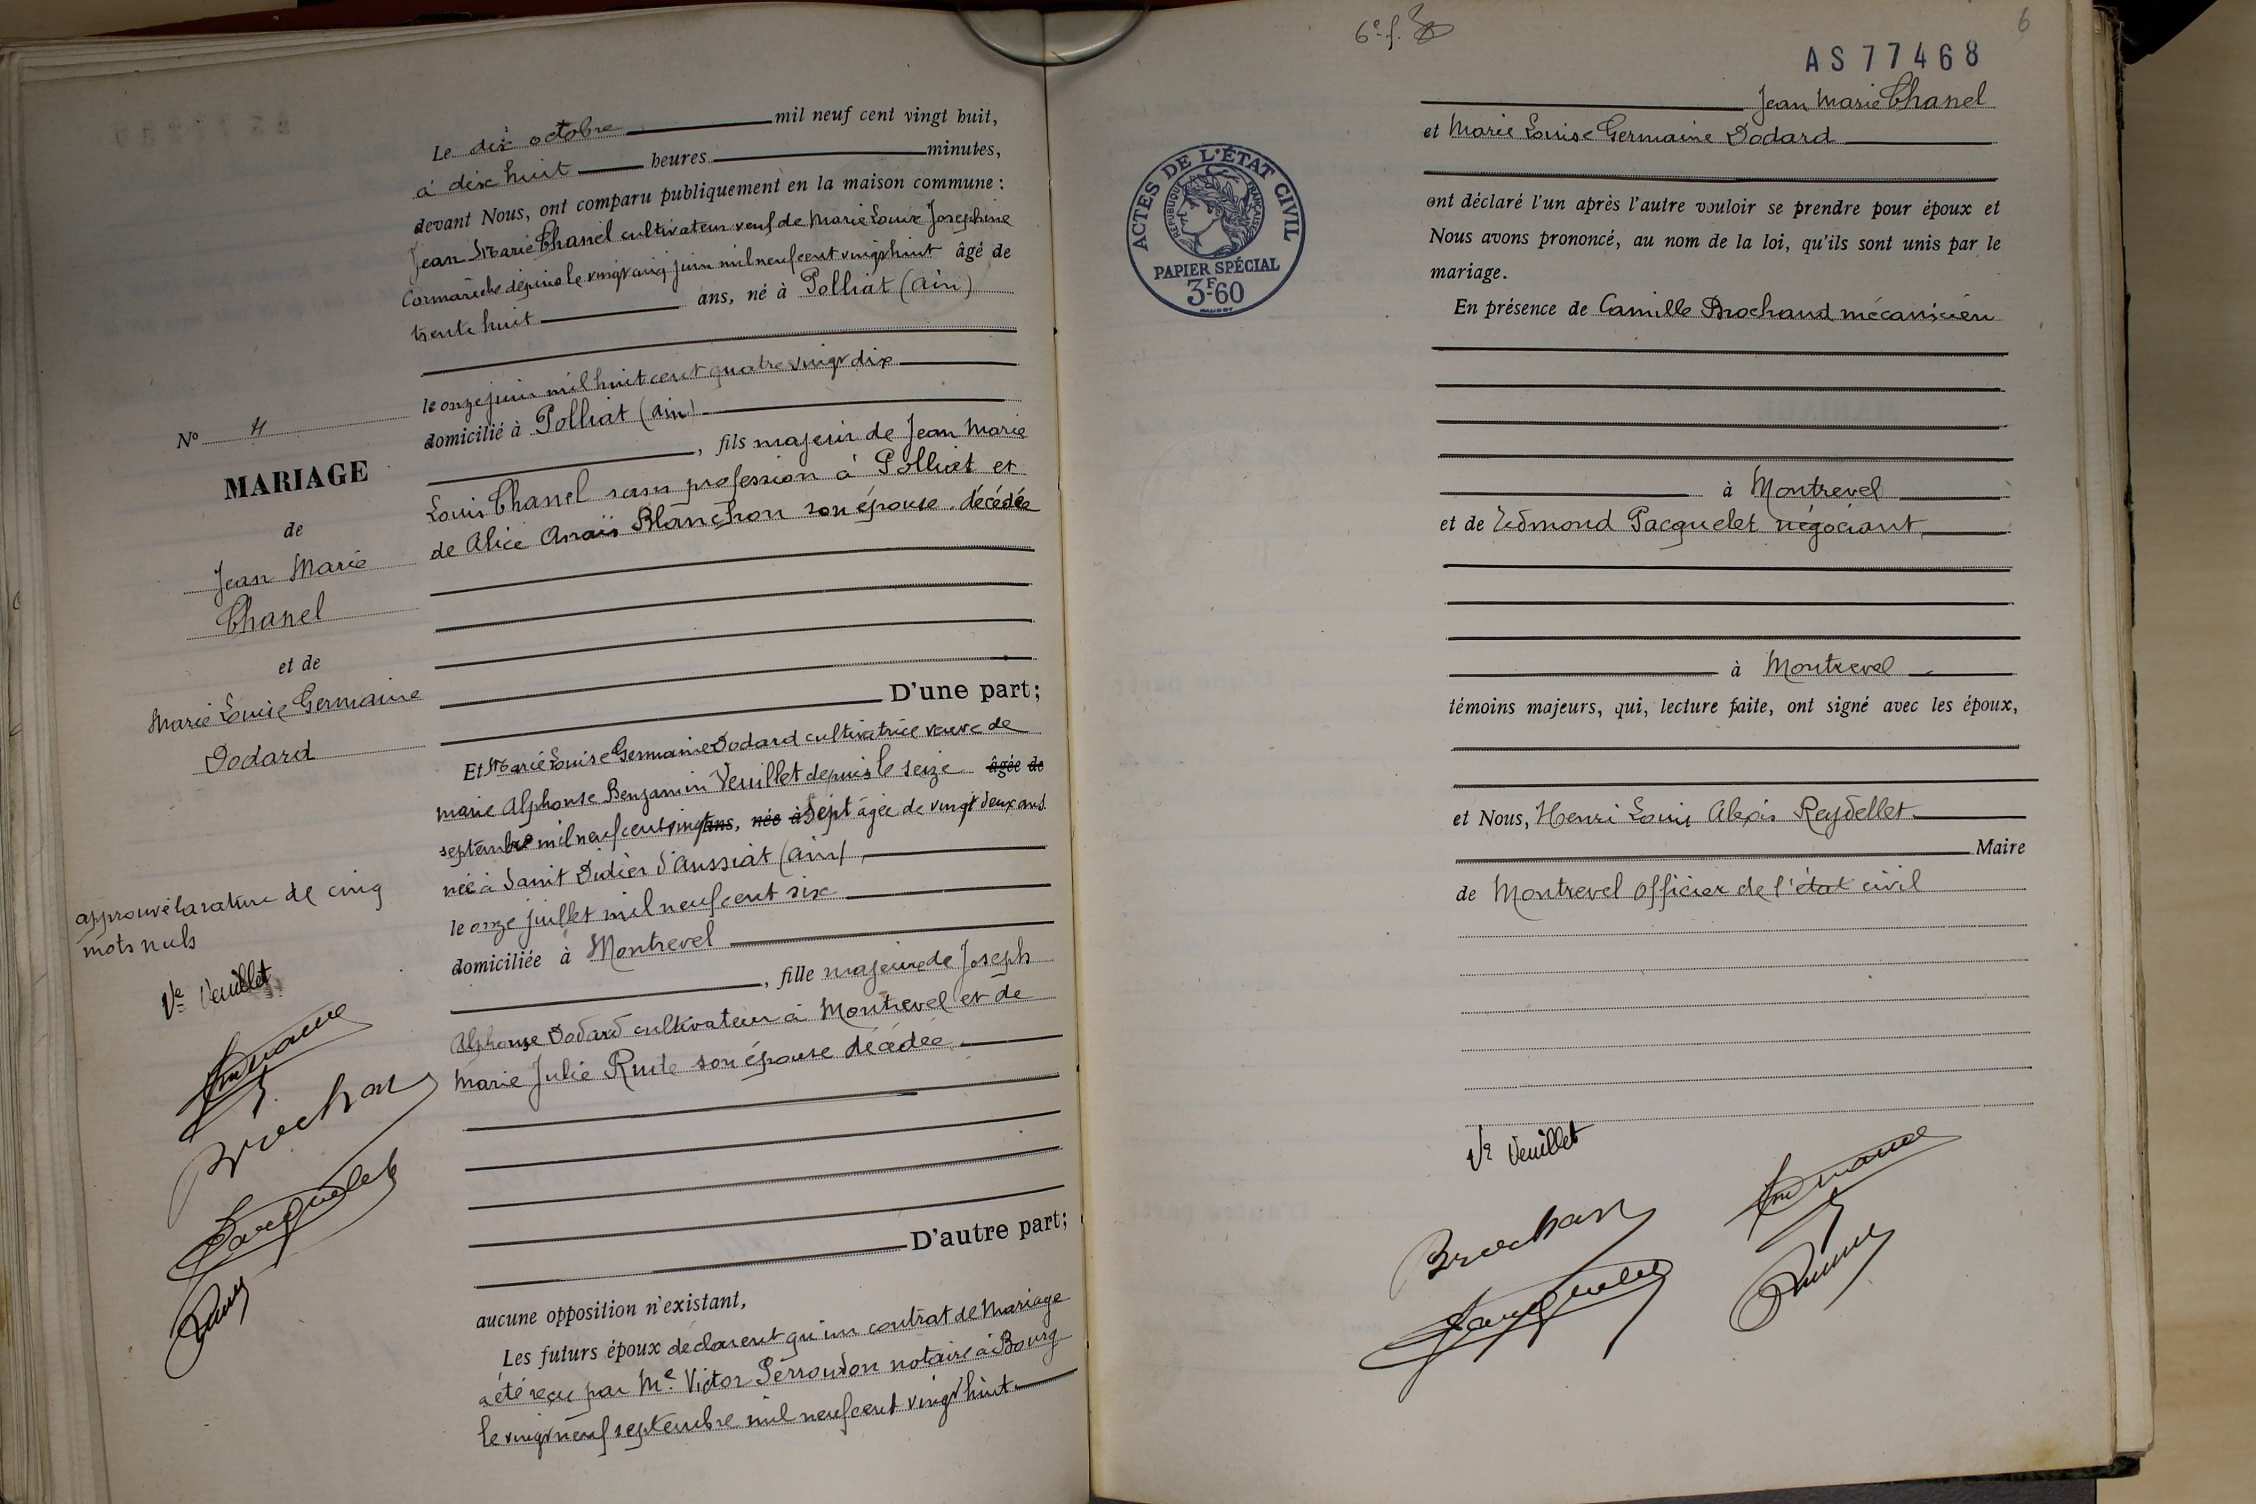 Le dix octobre mil neuf cent vingt huit,
à dix huit heures minutes,
devant Nous, ont comparu publiquement en la maison commune :
Jean Marie Chanel cultivateur veuf de Marie Louise Josephine
Cormarèche depuis le vingt cinq juin mil neuf cent vingt huit âgé de
trente huit ans, né à Polliat (Ain)
le onze juin mil huit cent quatre vingt dix
domicilié à Polliat (Ain)
, fils majeur de Jean Marie
Louis Chanel sans profession à Polliat et
de Alice Anaïs Blanchon son épouse décédée
D'une part;
Nº 4
MARIAGE
de
Jean Marie
Chanel
et de
Marie Louise Germaine
Dodard
Et Marie Louise Germaine Dodard cultivatrice veuve de
Marie Alphonse Benjamin Veuillet depuis le seize âgée de
septembre mil neuf cent vingt ans, née à sept âgée de vingt deux ans
née à Saint Didier d'Aussiat (Ain)
le onze juillet mil neuf cent six
domiciliée à Montrevel
, fille majeure de Joseph
Alphonse Dodard cultivateur à Montrevel et de
Marie Julie Rude son épouse décédée
D'autre part;
approuvé la rature de cinq
mots nuls
Ve Veuillet
Brochan
Pacquelet
aucune opposition n'existant,
Les futurs époux déclarent qu'un contrat de Mariage
a été reçu par Me Victor Perroudon notaire à Bourg
le vingt neuf septembre mil neuf cent vingt huit
6e f.
6
AS77468
Jean Marie Chanel
et Marie Louise Germaine Dodard
ACTES DE L'ÉTAT CIVIL
RÉPUBLIQUE FRANÇAISE
PAPIER SPÉCIAL
3F60
ont déclaré l'un après l'autre vouloir se prendre pour époux et
Nous avons prononcé, au nom de la loi, qu'ils sont unis par le
mariage.
En présence de Camille Brochand mécanicien
à Montrevel
et de Edmond Pacquelet négociant
à Montrevel
témoins majeurs, qui, lecture faite, ont signé avec les époux,
et Nous, Henri Louis Alexis Reydellet
Maire
de Montrevel officier de l'état civil
Ve Veuillet
Brochan
Pacquelet